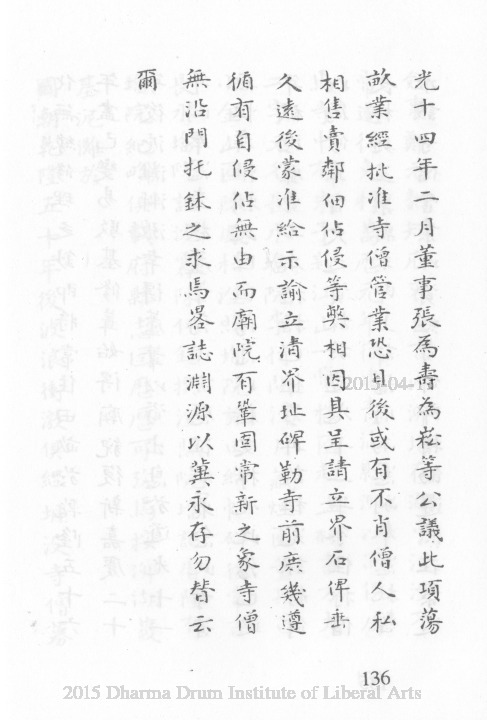 光十四年二月董事張為壽為崧等公議此項蕩
畝業經批准寺僧管業恐日後或有不肖僧人私
相售賣鄰佃佔侵等弊相因具呈請立界石俾垂
久遠後蒙准給示諭立清界址碑勒寺前庶幾遵
循有自侵佔無由而廟院有鞏固常新之象寺僧
無沿門托鉢之求焉畧誌淵源以冀永存勿替云
爾
136
2015 Dharma Drum Institute of Liberal Arts